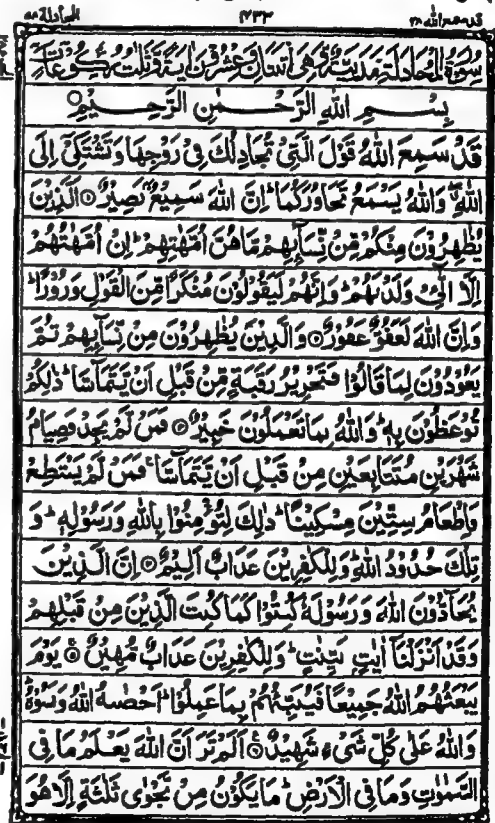 قد سمع الله ٢٨ ٤٣٢ المجادلة ٥٨
سُوۡرَةُ الۡمُجَادِلَةِ مَدَنِيَّةٌ وَّهِىَ اثۡنَتَانِ وَعِشۡرُوۡنَ اٰيَةً وَّثَلٰثُ رُكُوۡعَاتٍ
بِسۡمِ اللهِ الرَّحۡمٰنِ الرَّحِيۡمِ
قَدۡ سَمِعَ اللهُ قَوۡلَ الَّتِىۡ تُجَادِلُكَ فِىۡ زَوۡجِهَا وَتَشۡتَكِىۡۤ اِلَى
اللهِ ۖ وَاللهُ يَسۡمَعُ تَحَاوُرَكُمَا ؕ اِنَّ اللهَ سَمِيۡعٌۢ بَصِيۡرٌ ۞١ اَلَّذِيۡنَ
يُظٰهِرُوۡنَ مِنۡكُمۡ مِّنۡ نِّسَآٮِٕهِمۡ مَّا هُنَّ اُمَّهٰتِهِمۡ ؕ اِنۡ اُمَّهٰتُهُمۡ
اِلَّا الّٰٓـىِٔۡ وَلَدۡنَهُمۡ ؕ وَاِنَّهُمۡ لَيَقُوۡلُوۡنَ مُنۡكَرًا مِّنَ الۡقَوۡلِ وَزُوۡرًا ؕ
وَاِنَّ اللهَ لَعَفُوٌّ غَفُوۡرٌ ۞٢ وَالَّذِيۡنَ يُظٰهِرُوۡنَ مِنۡ نِّسَآٮِٕهِمۡ ثُمَّ
يَعُوۡدُوۡنَ لِمَا قَالُوۡا فَتَحۡرِيۡرُ رَقَبَةٍ مِّنۡ قَبۡلِ اَنۡ يَّتَمَآسَّا ؕ ذٰلِكُمۡ
تُوۡعَظُوۡنَ بِهٖ ؕ وَاللهُ بِمَا تَعۡمَلُوۡنَ خَبِيۡرٌ ۞٣ فَمَنۡ لَّمۡ يَجِدۡ فَصِيَامُ
شَهۡرَيۡنِ مُتَتَابِعَيۡنِ مِنۡ قَبۡلِ اَنۡ يَّتَمَآسَّا ۚ فَمَنۡ لَّمۡ يَسۡتَطِعۡ
فَاِطۡعَامُ سِتِّيۡنَ مِسۡكِيۡنًا ؕ ذٰلِكَ لِتُؤۡمِنُوۡا بِاللهِ وَرَسُوۡلِهٖ ؕ وَ
تِلۡكَ حُدُوۡدُ اللهِ ؕ وَلِلۡكٰفِرِيۡنَ عَذَابٌ اَلِيۡمٌ ۞٤ اِنَّ الَّذِيۡنَ
يُحَآدُّوۡنَ اللهَ وَرَسُوۡلَهٗ كُبِتُوۡا كَمَا كُبِتَ الَّذِيۡنَ مِنۡ قَبۡلِهِمۡ
وَقَدۡ اَنۡزَلۡنَاۤ اٰيٰتٍۭ بَيِّنٰتٍ ؕ وَلِلۡكٰفِرِيۡنَ عَذَابٌ مُّهِيۡنٌ ۞٥ يَوۡمَ
يَبۡعَثُهُمُ اللهُ جَمِيۡعًا فَيُنَبِّئُهُمۡ بِمَا عَمِلُوۡا ؕ اَحۡصٰٮهُ اللهُ وَنَسُوۡهُ ؕ
وَاللهُ عَلٰى كُلِّ شَىۡءٍ شَهِيۡدٌ ۞٦ اَلَمۡ تَرَ اَنَّ اللهَ يَعۡلَمُ مَا فِى
السَّمٰوٰتِ وَمَا فِى الۡاَرۡضِ ؕ مَا يَكُوۡنُ مِنۡ نَّجۡوٰى ثَلٰثَةٍ اِلَّا هُوَ